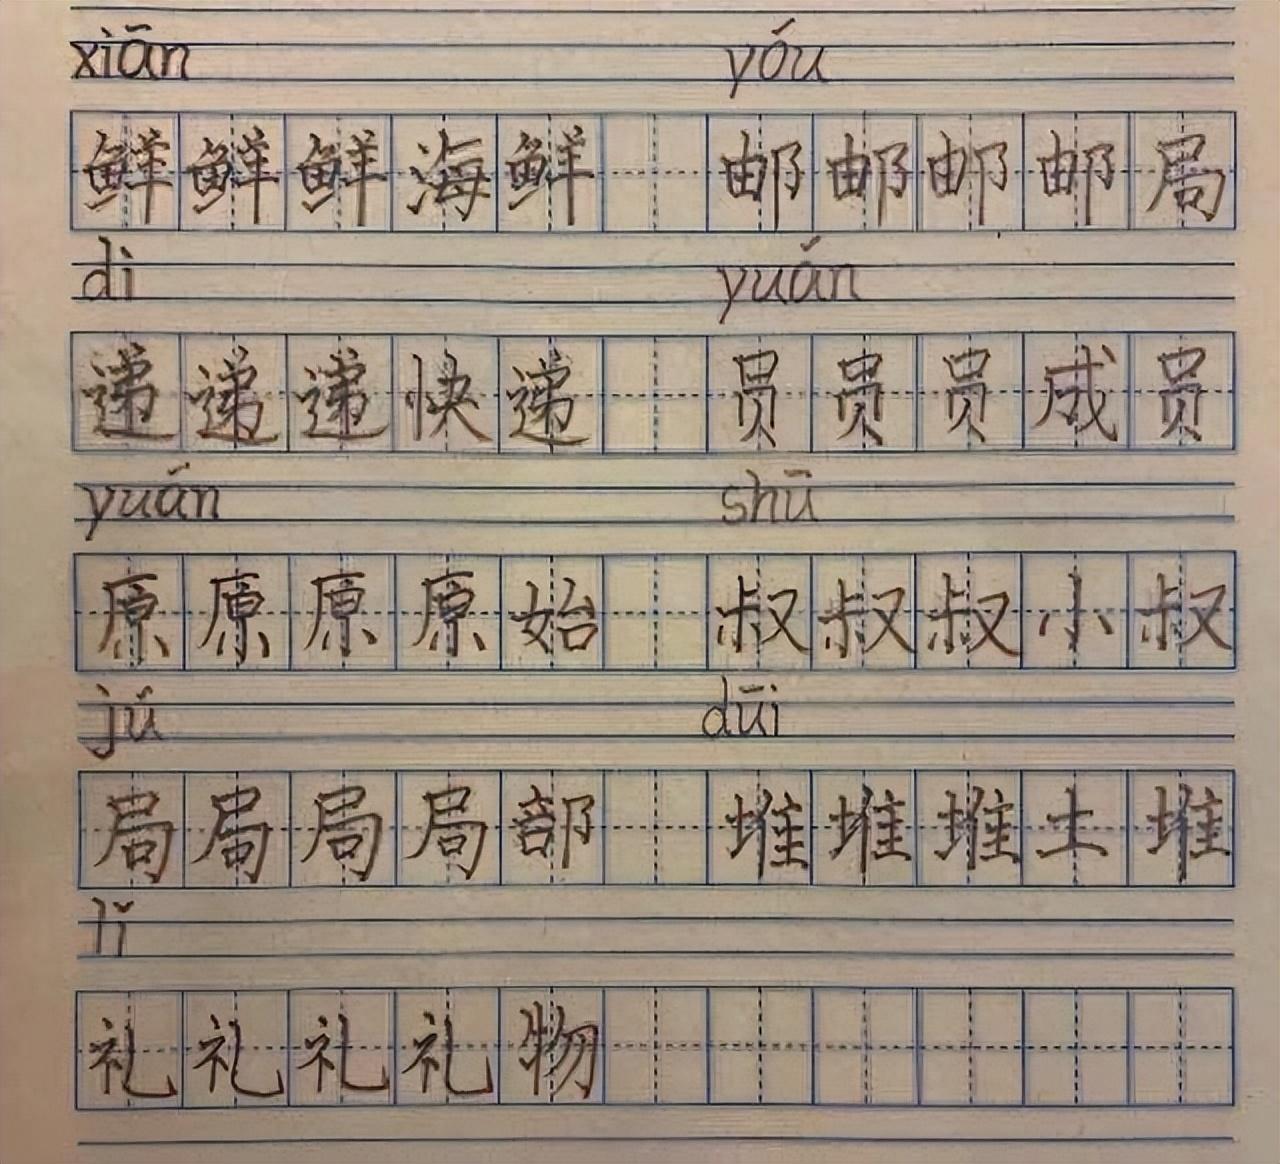 xiān yóu
鲜鲜鲜海鲜 邮邮邮邮局
dì yuán
递递递快递 员员员成员
yuán shū
原原原原始 叔叔叔小叔
jú dūi
局局局局部 堆堆堆土堆
lǐ
礼礼礼礼物